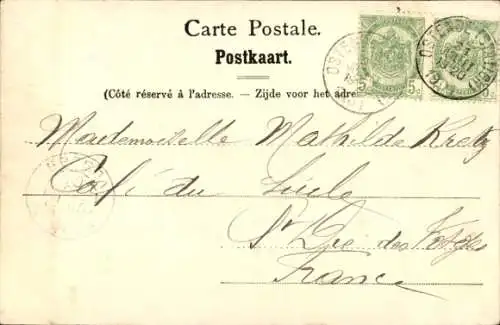 Carte Postale.
Postkaart.
(Côté réservé à l'adresse. — Zijde voor het adres
Mademoiselle Mathilde Kretz
Café du Siècle
St Dié des Vosges
France
OSTENDE
5c
5c